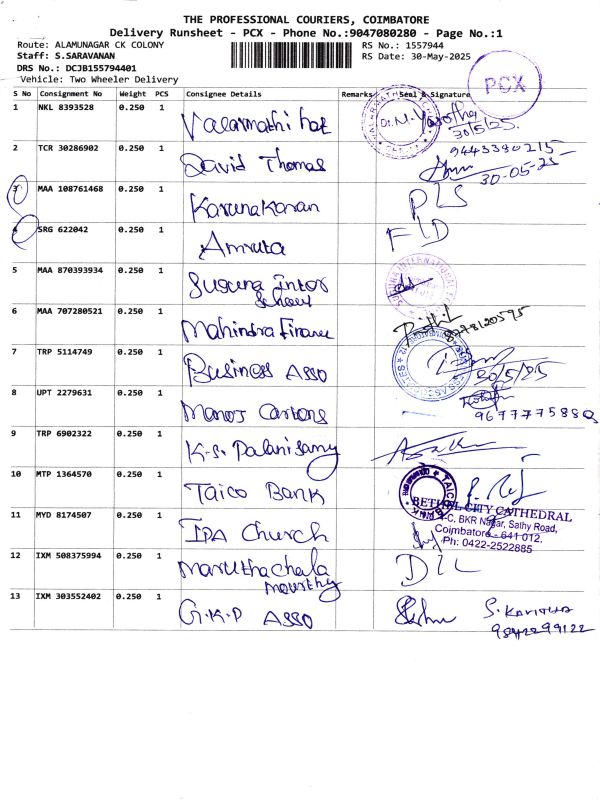 THE PROFESSIONAL COURIERS, COIMBATORE
Delivery Runsheet - PCX - Phone No.:9047080280 - Page No.:1
Route: ALAMUNAGAR CK COLONY
RS No.: 1557944
Staff: S.SARAVANAN
RS Date: 30-May-2025
DRS No.: DCJB155794401
Vehicle: Two Wheeler Delivery
PCX
S No Consignment No Weight PCS Consignee Details Remarks Seal & Signature
1 NKL 8393528 0.250 1 Valarmathi hot Dr. N.
30/5/25.
2 TCR 30286902 0.250 1 David Thomas 9443390215
30-05-25
3 MAA 108761468 0.250 1 Karunakaran P L S
4 SRG 622042 0.250 1 Amruta F L D
5 MAA 870393934 0.250 1 Suguna Inter
School
6 MAA 707280521 0.250 1 Mahindra Finance
7 TRP 5114749 0.250 1 Business ASSO 30/5/25
8 UPT 2279631 0.250 1 Manoj Cartons 9677775880
9 TRP 6902322 0.250 1 K.S. Palanisamy
10 MTP 1364570 0.250 1 Taico Bank
BETHEL CITY CATHEDRAL
11 MYD 8174507 0.250 1 IPA Church
BKR Nagar, Sathy Road,
Coimbatore - 641 012.
Ph: 0422-2522885
12 IXM 508375994 0.250 1 Maruthachala
Mourthy D I L
13 IXM 303552402 0.250 1 G.K.P ASSO S. Kavitha
9842299122